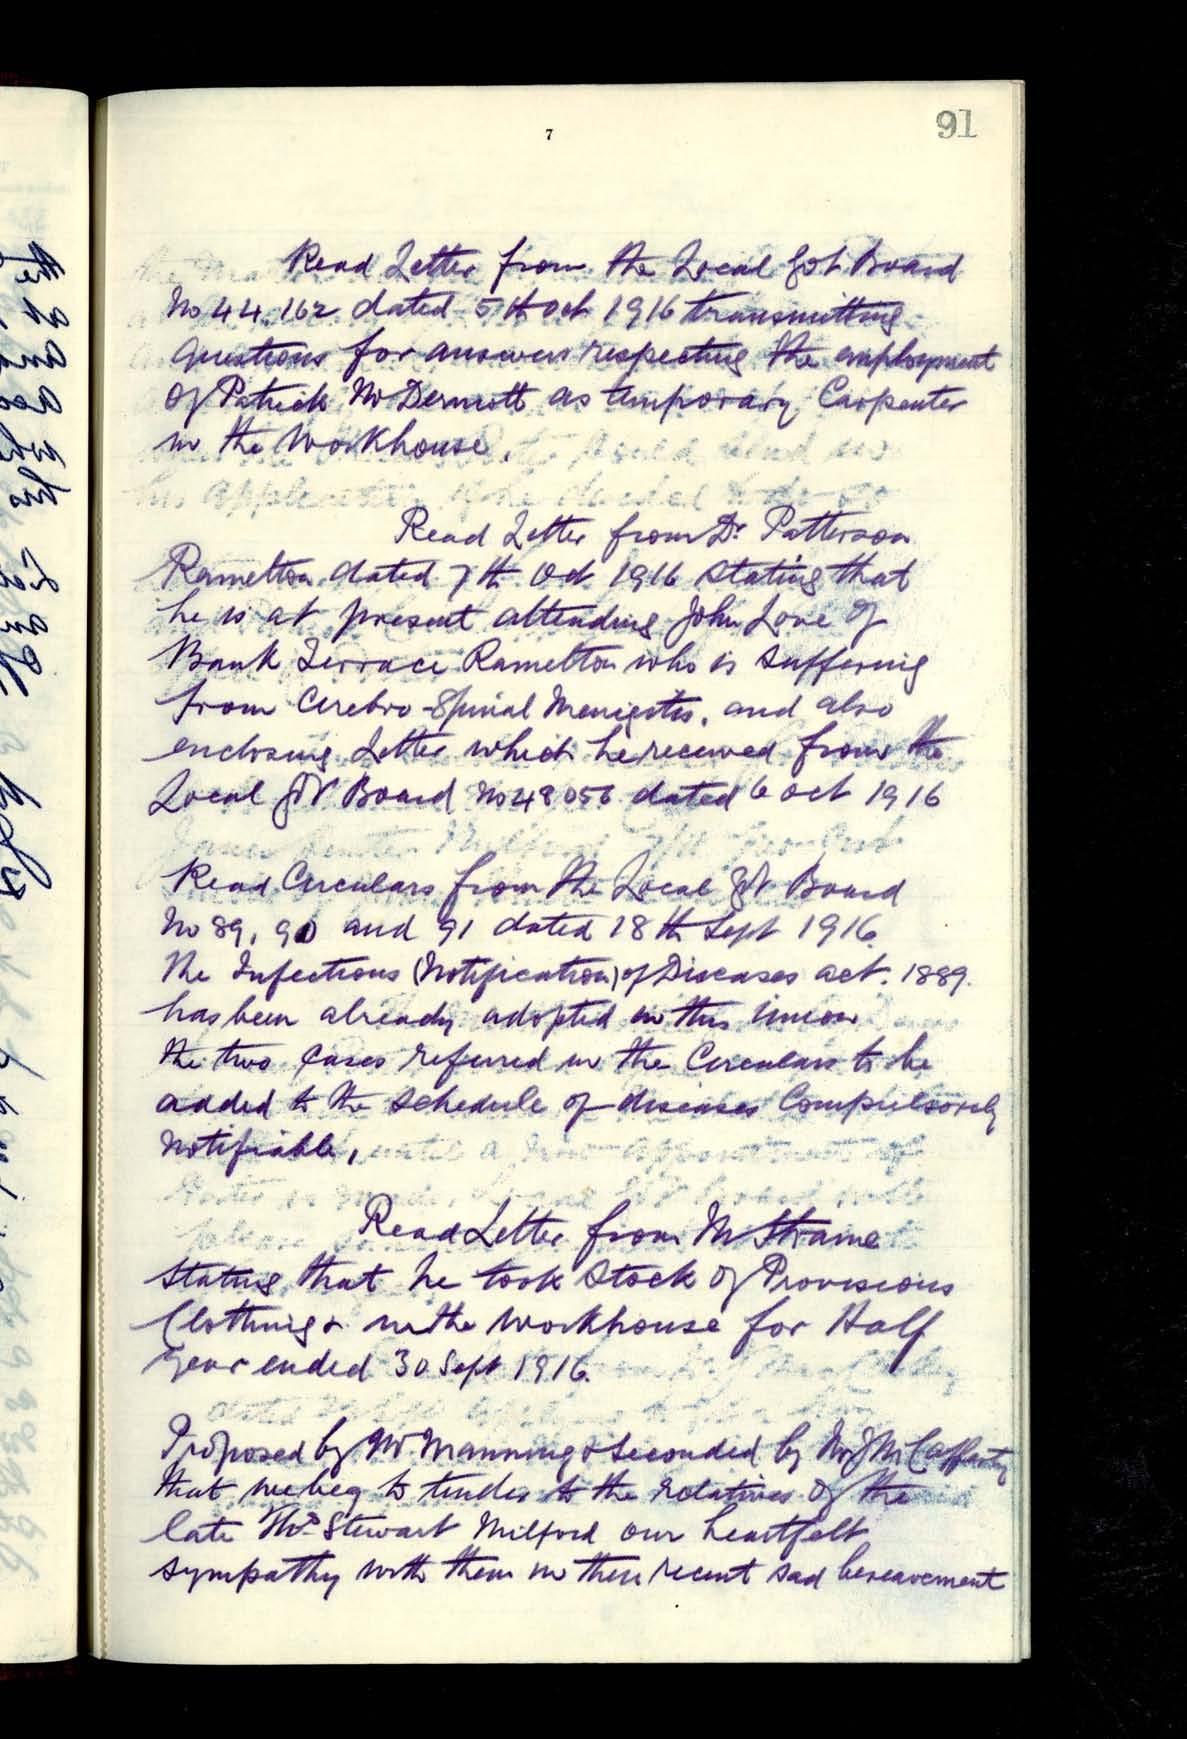 91
7
Read Letter from the Local Govt Board
No 44.162 dated 5th Oct 1916 transmitting
Questions for answers respecting the employment
of Patrick McDermott as temporary Carpenter
in the Workhouse.
Read Letter from Dr Patterson
Ramelton dated 7th Oct 1916 stating that
he is at present attending John Love of
Bank Terrace Ramelton who is suffering
from Cerebro-Spinal Menigitis, and also
enclosing Letter which he received from the
Local Govt Board No 48056 dated 6 Oct 1916
Read Circulars from the Local Govt Board
No 89, 90 and 91 dated 18th Sept 1916.
The Infectious (Notification) of Diseases act. 1889.
has been already adopted in this Union
the two cases referred in the Circulars to be
added to the schedule of diseases Compulsorily
Notifiable,
Read Letter from Mr Straine
stating that he took Stock of Provisions
Clothing & in the Workhouse for Half
year ended 30 Sept 1916.
Proposed by Mr Manning & Seconded by Mr J McCafferty
that we beg to tender to the relatives of the
late Thos Stewart Milford our heartfelt
sympathy with them in their recent sad bereavement